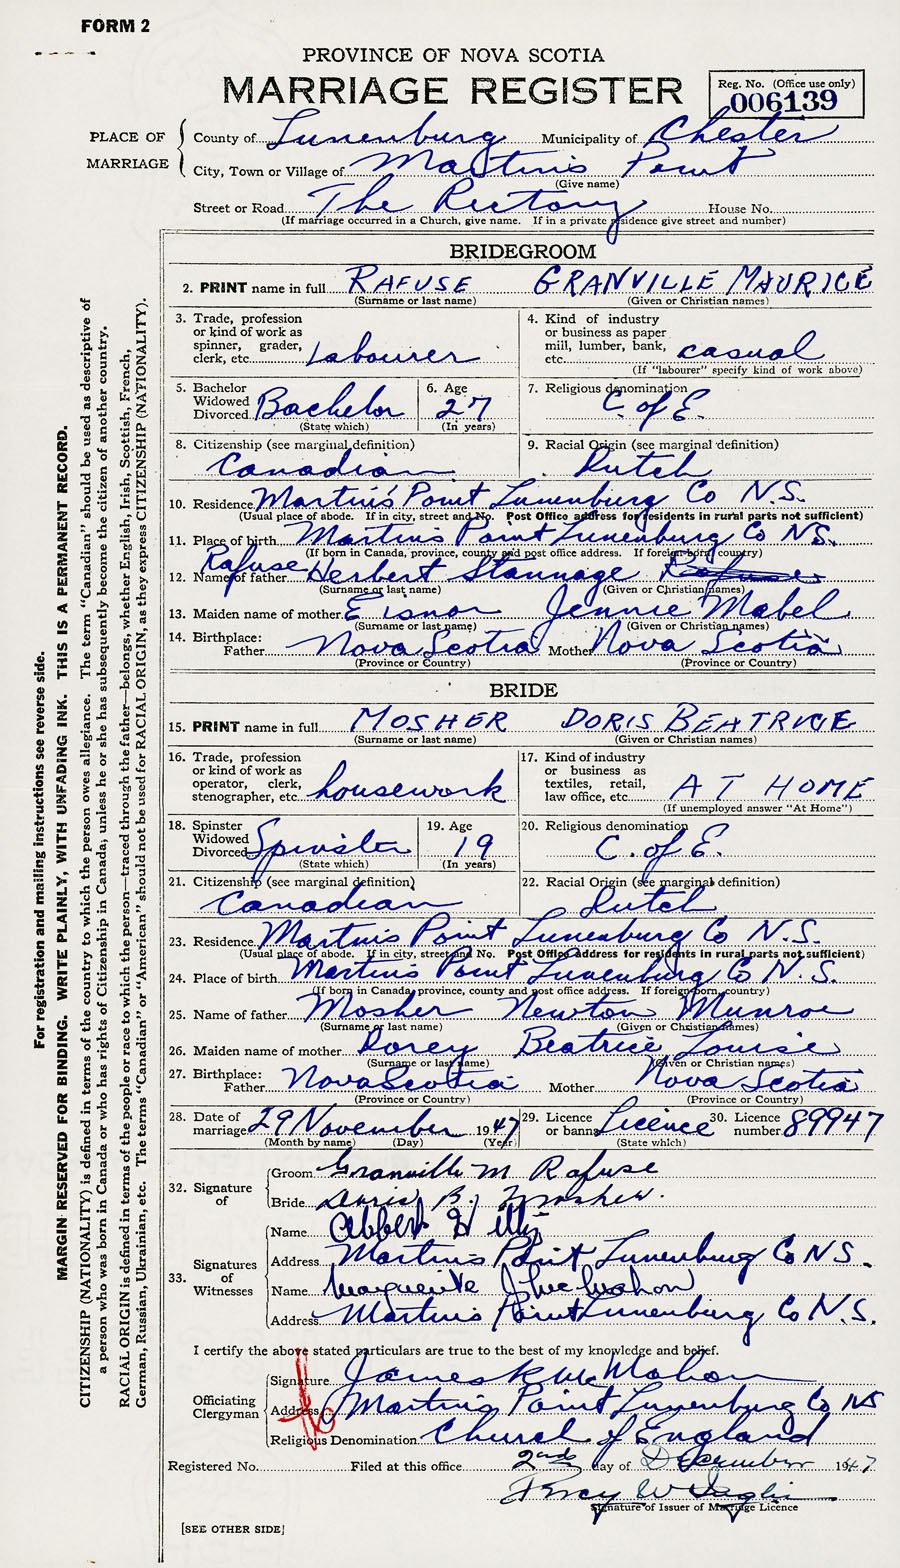 FORM 2
PROVINCE OF NOVA SCOTIA
MARRIAGE REGISTER
Reg. No. (Office use only)
006139
PLACE OF MARRIAGE
County of Lunenburg Municipality of Chester
City, Town or Village of Martins Point
(Give name)
Street or Road The Rectory House No.
(If marriage occurred in a Church, give name. If in a private residence give street and number)
BRIDEGROOM
2. PRINT name in full RAFUSE GRANVILLE MAURICE
(Surname or last name) (Given or Christian names)
3. Trade, profession or kind of work as spinner, grader, clerk, etc. Labourer
4. Kind of industry or business as paper mill, lumber, bank, etc. casual
(If "labourer" specify kind of work above)
5. Bachelor Widowed Divorced Bachelor
(State which)
6. Age 27
(In years)
7. Religious denomination C. of E.
8. Citizenship (see marginal definition) Canadian
9. Racial Origin (see marginal definition) Dutch
10. Residence Martin's Point Lunenburg Co N.S.
(Usual place of abode. If in city, street and No. Post Office address for residents in rural parts not sufficient)
11. Place of birth Martins Point Lunenburg Co NS.
(If born in Canada, province, county and post office address. If foreign-born, country)
12. Name of father Rafuse Herbert Stannage Rafuse
(Surname or last name) (Given or Christian names)
13. Maiden name of mother Eisnor Jennie Mabel
(Surname or last name) (Given or Christian names)
14. Birthplace:
Father Nova Scotia Mother Nova Scotia
(Province or Country) (Province or Country)
BRIDE
15. PRINT name in full MOSHER DORIS BEATRICE
(Surname or last name) (Given or Christian names)
16. Trade, profession or kind of work as operator, clerk, stenographer, etc. housework
17. Kind of industry or business as textiles, retail, law office, etc. AT HOME
(If unemployed answer "At Home")
18. Spinster Widowed Divorced Spinster
(State which)
19. Age 19
(In years)
20. Religious denomination C. of E.
21. Citizenship (see marginal definition) Canadian
22. Racial Origin (see marginal definition) Dutch
23. Residence Martins Point Lunenburg Co N.S.
(Usual place of abode. If in city, street and No. Post Office address for residents in rural parts not sufficient)
24. Place of birth Martins Point Lunenburg Co N.S.
(If born in Canada, province, county and post office address. If foreign-born, country)
25. Name of father Mosher Newton Munroe
(Surname or last name) (Given or Christian names)
26. Maiden name of mother Dorey Beatrice Louise
(Surname or last name) (Given or Christian names)
27. Birthplace:
Father Nova Scotia Mother Nova Scotia
(Province or Country) (Province or Country)
28. Date of marriage 29 November 1947
(Month by name) (Day) (Year)
29. Licence or banns Licence
(State which)
30. Licence number 89947
32. Signature of
Groom Granville M Rafuse
Bride Doris B. Mosher.
33. Signatures of Witnesses
Name Albert
Address Martins Point Lunenburg Co NS.
Name Marguerite
Address Martins Point Lunenburg Co N.S.
I certify the above stated particulars are true to the best of my knowledge and belief.
Officiating Clergyman
Signature James K McMahon
Address Martins Point Lunenburg Co NS
Religious Denomination Church of England
Registered No. Filed at this office 2nd day of December 1947
Percy W
Signature of Issuer of Marriage Licence
[SEE OTHER SIDE]
For registration and mailing instructions see reverse side.
MARGIN RESERVED FOR BINDING. WRITE PLAINLY, WITH UNFADING INK. THIS IS A PERMANENT RECORD.
CITIZENSHIP (NATIONALITY) is defined in terms of the country to which the person owes allegiance. The term "Canadian" should be used as descriptive of
a person who was born in Canada or who has rights of Citizenship in Canada, unless he or she has subsequently become the citizen of another country.
RACIAL ORIGIN is defined in terms of the people or race to which the person—traced through the father—belongs, whether English, Irish, Scottish, French,
German, Russian, Ukrainian, etc. The terms "Canadian" or "American" should not be used for RACIAL ORIGIN, as they express CITIZENSHIP (NATIONALITY).